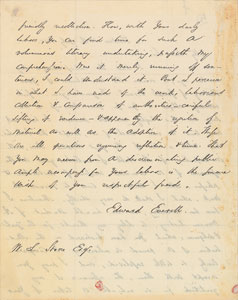 friendly recollection. How, with your daily
labor, you can find time for such a
voluminous literary undertaking, passeth my
comprehension. Was it merely running off
I could understand it. But I perceive
in what I have read of the work, laborious
collection & comparison of authorities — careful
sifting of evidence — & apparently the rejection of
material as well as the adoption of it. These
are ill
you may receive from a discriminating public
ample recompense for your labor, is the sincere
wish of your respectful friend.
Edward Everett
W. L. Stone Esq.